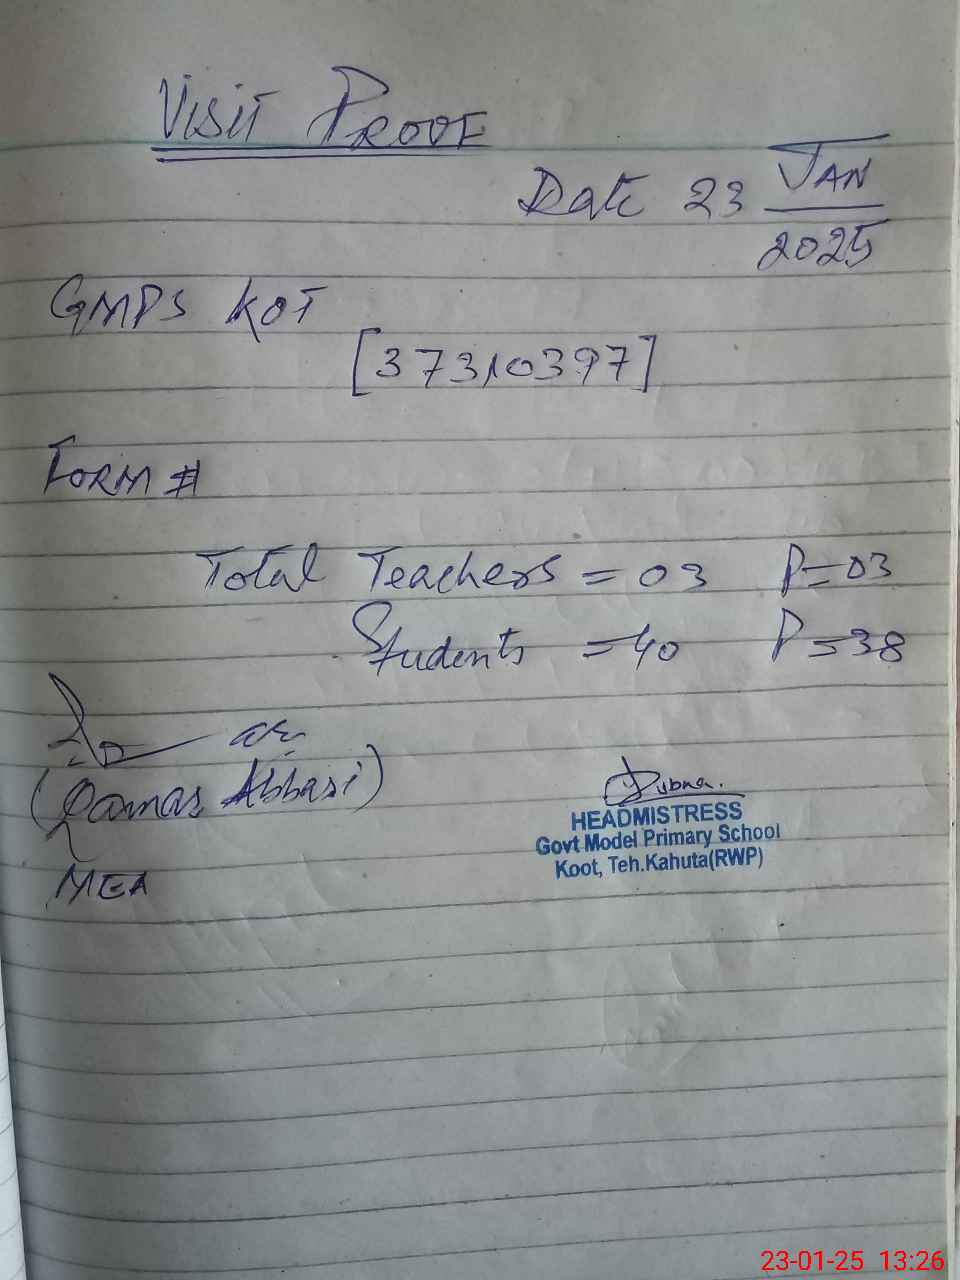 VISIT PROOF
Date 23 JAN
2025
GMPS KOT
[37310397]
FORM #
Total Teachers = 03 P=03
Students = 40 P=38
(Qamar Abbasi)
MEA
HEADMISTRESS
Govt Model Primary School
Koot, Teh.Kahuta(RWP)
23-01-25 13:26